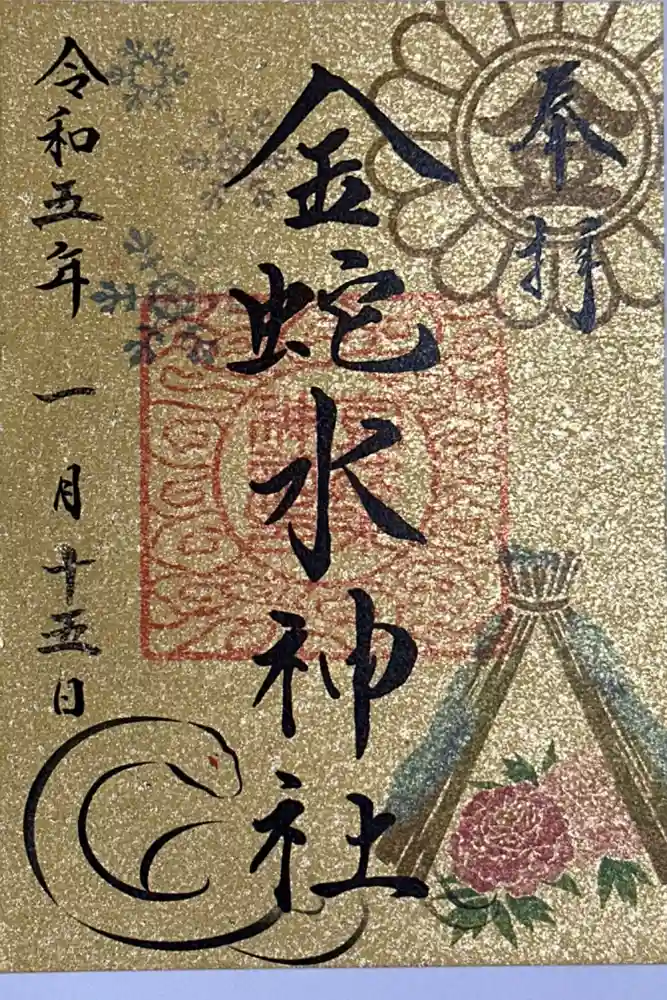 奉拝
金蛇水神社
令和五年一月十五日